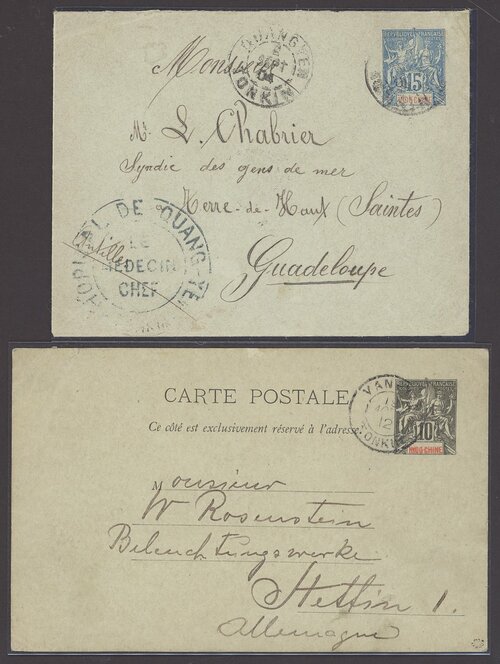 Monsieur
QUANG-YEN
2
SEPT
04
TONKIN
REPUBLIQUE FRANÇAISE
15
INDO-CHINE
Mr. L. Chabrier
Syndic des gens de mer
Terre-de-Haut (Saintes)
Guadeloupe
Antilles
HOPITAL DE QUANG-YEN
LE
MEDECIN
CHEF
CARTE POSTALE
Ce côté est exclusivement réservé à l'adresse.
REPUBLIQUE FRANÇAISE
10
INDO-CHINE
12
TONKIN
Monsieur
W Rosenstein
Beleuchtungswerke
Stettin 1.
Allemagne